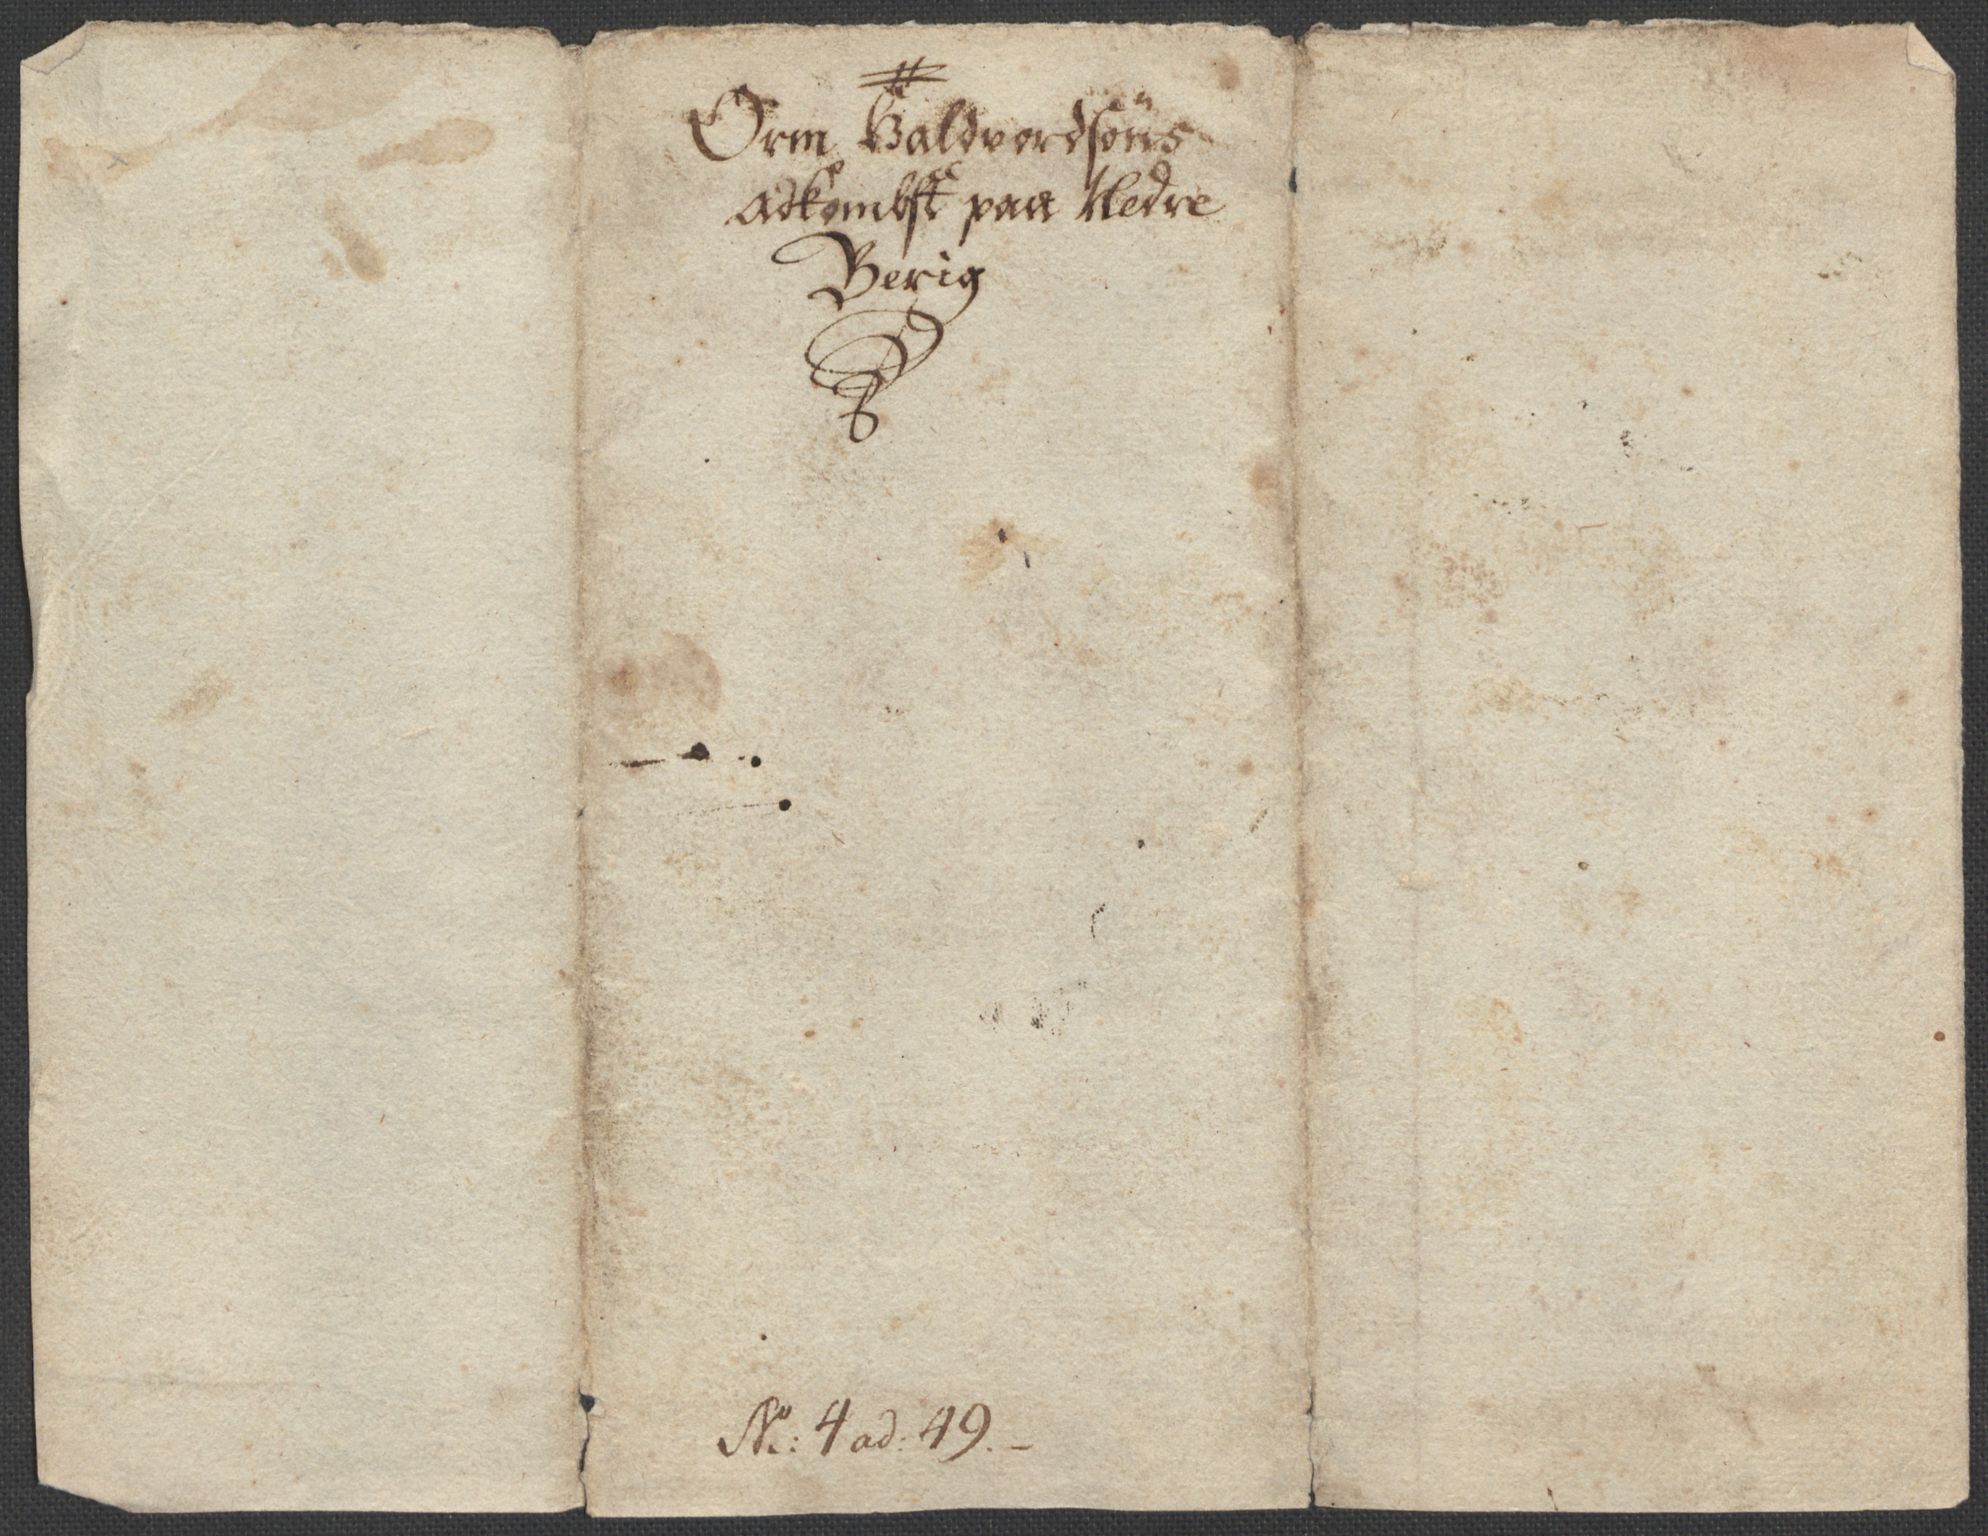 #
Orm Haldvordsøns
Adkombst paa Nedre
Berig
No: 4 ad: 49. –